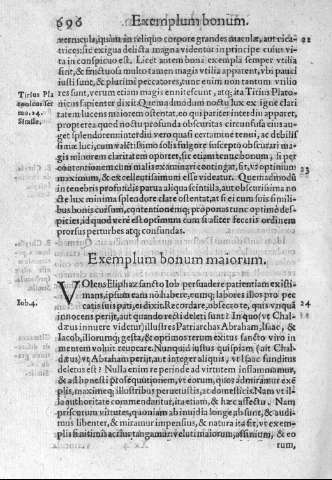 696 Exemplum bonum.
verrucula, quàm in reliquo corpore grandes maculæ, aut cica- 22
trices: sic exigua delicta magna videntur in principe cuius vi-
ta in conspicuo est. Licet autem bona exempla semper vtilia
sint, & fructuosa multo tamen magis vtilia apparent, vbi pauci
iusti sunt, & plurimi peccatores, tunc enim non tantum vtilio
res sunt, verum etiam magis ennitescunt, atq; ita Tirius Plato-
Tirius Pla
tonicus ser
mo. 24.
Simile.
nicus sapienter dixit. Quemadmodum noctu lux ex igne clari
tatem lucens minorem ostentat, eo quod pariter interdiu apparet,
propterea quod noctu profunda obscuritas circunfusa eius au-
get splendorem interdiu vero quasi certamine tenui, ac debilis
simæ luci, cum altissimo solis fulgore suscepto obscurari ma-
gis minorem claritatem oportet, sic etiam tenue bonum, si per
contentionem cum malis examinari contingat, fit, vt optimum
maximum, & excellentissimum esse videatur. Quemadmodum 23
in tenebris profundis parua aliqua scintilla, aut obscurissima no
cte lux minima splendore clare ostentat, at si ei cum suis simili-
bus bonis cursum, contentionemq; proponas tunc optime des-
picies, id quod vere est optimum cum si aliter feceris ordinem
prorsus perturbes atq; confundas.
Exemplum bonum maiorum.
VOlens Eliphaz sancto Iob persuadere patientiam existi-
mans, ipsum eam non habere, eumq; labores illos pro pec
Iob. 4.
catis suis pati, ei dixit. Recordare, obsecro te, quis vnquam 24
innocens perijt, aut quando recti deleti sunt? In quo (vt Chal-
dæus innuere videtur) illustres Patriarchas Abraham, Isaac, &
Iacob, illorumq; gesta, & optimos rerum exitus sancto viro in
mentem voluit reuocare. Nunquid iustus quispiam (ait Chal-
dæus) vt Abraham perijt, aut integer aliquis, vt Isaac funditus
deletus est? Nulla enim re perinde ad virtutem inflammamur,
& ad honesti prosequutionem, vt eorum, quos admiramur exẽ
plis, maximeq; illustribus peruetustis, at domesticis. Nam vt il-
la authoritate commendantur, ita etiam, & hæc affectu. Nam
priscorum virtutes, quoniam ab inuidia longe absunt, & audi-
mus libenter, & miramur impensius, & natura ita fit, vt exem-
plis finitimi acrius tangamur veluti maiorum, affinium, & eo
rum,